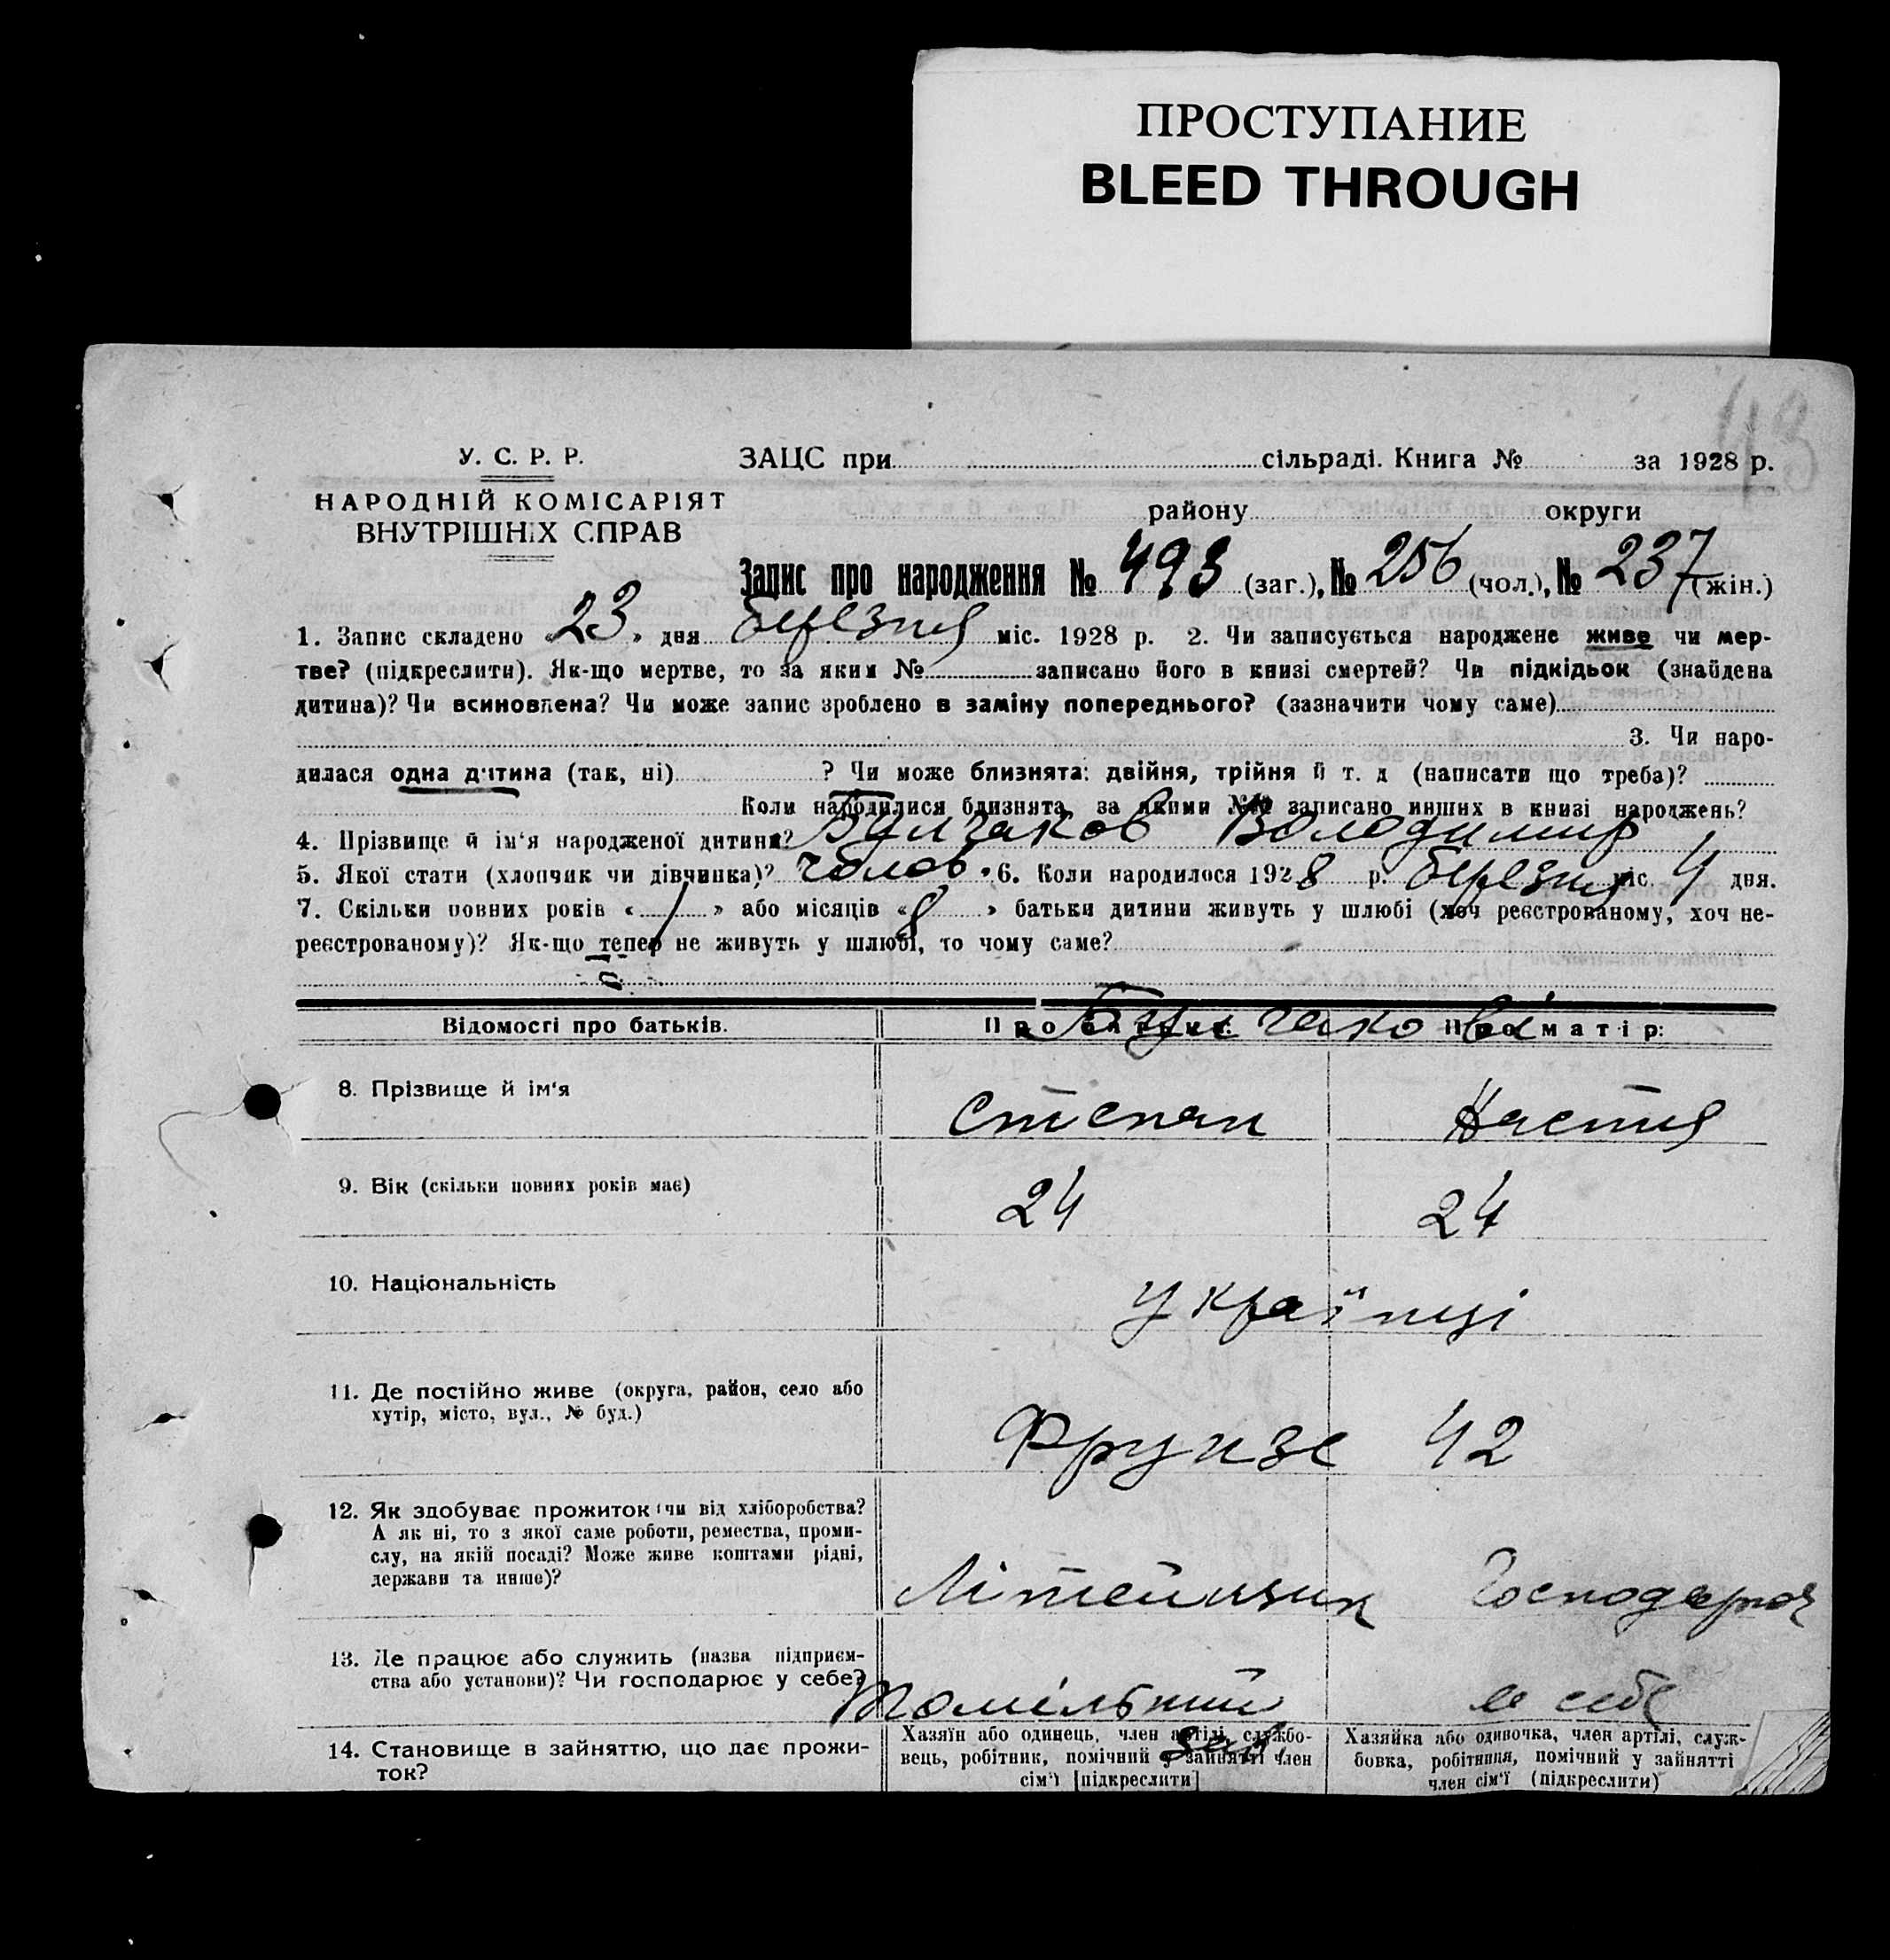 ПРОСТУПАНИЕ
BLEED THROUGH
43
У. С. Р. Р.
НАРОДНІЙ КОМІСАРІЯТ
ВНУТРІШНІХ СПРАВ
ЗАЦС при сільраді. Книга № за 1928 р.
району округи
Запис про народження № 493 (заг.), № 256 (чол.), № 237 (жін.)
1. Запис складено «23» дня березня міс. 1928 р. 2. Чи записується народжене живе чи мер-
тве? (підкреслити). Як-що мертве, то за яким № записано його в книзі смертей? Чи підкідьок (знайдена
дитина)? Чи всиновлена? Чи може запис зроблено в заміну попереднього? (зазначити чому саме)
3. Чи наро-
дилася одна дитина (так, ні) ? Чи може близнята: двійня, трійня й т. д (написати що треба)?
Коли народилися близнята, за якими №№ записано инших в книзі народжень?
4. Прізвище й ім'я народженої дитини? Володимир
5. Якої стати (хлопчик чи дівчинка)? чолов. 6. Коли народилося 1928 р. березня міс. 4 дня.
7. Скільки повних років «1» або місяців «8» батьки дитини живуть у шлюбі (хоч реєстрованому, хоч не-
реєстрованому)? Як-що тепер не живуть у шлюбі, то чому саме?
Відомості про батьків. Про батька: Про матір:
8. Прізвище й ім'я Степан Настя
9. Вік (скільки повних років має) 24 24
10. Національність Українці
11. Де постійно живе (округа, район, село або
хутір, місто, вул., № буд.)
Фрунзе 42
12. Як здобуває прожиток (чи від хліборобства?
А як ні, то з якої саме роботи, ремества, проми-
слу, на якій посаді? Може живе коштами рідні,
держави та инше)?
Літейщик Господарка
13. Де працює або служить (назва підприєм-
ства або установи)? Чи господарює у себе?
в себе
14. Становище в зайняттю, що дає прожи-
ток?
Хазяїн або одинець, член артілі, службо-
вець, робітник, помічний у зайнятті член
сім'ї [підкреслити]
Хазяйка або одиночка, член артілі, служ-
бовка, робітниця, помічний у зайнятті
член сім'ї (підкреслити)